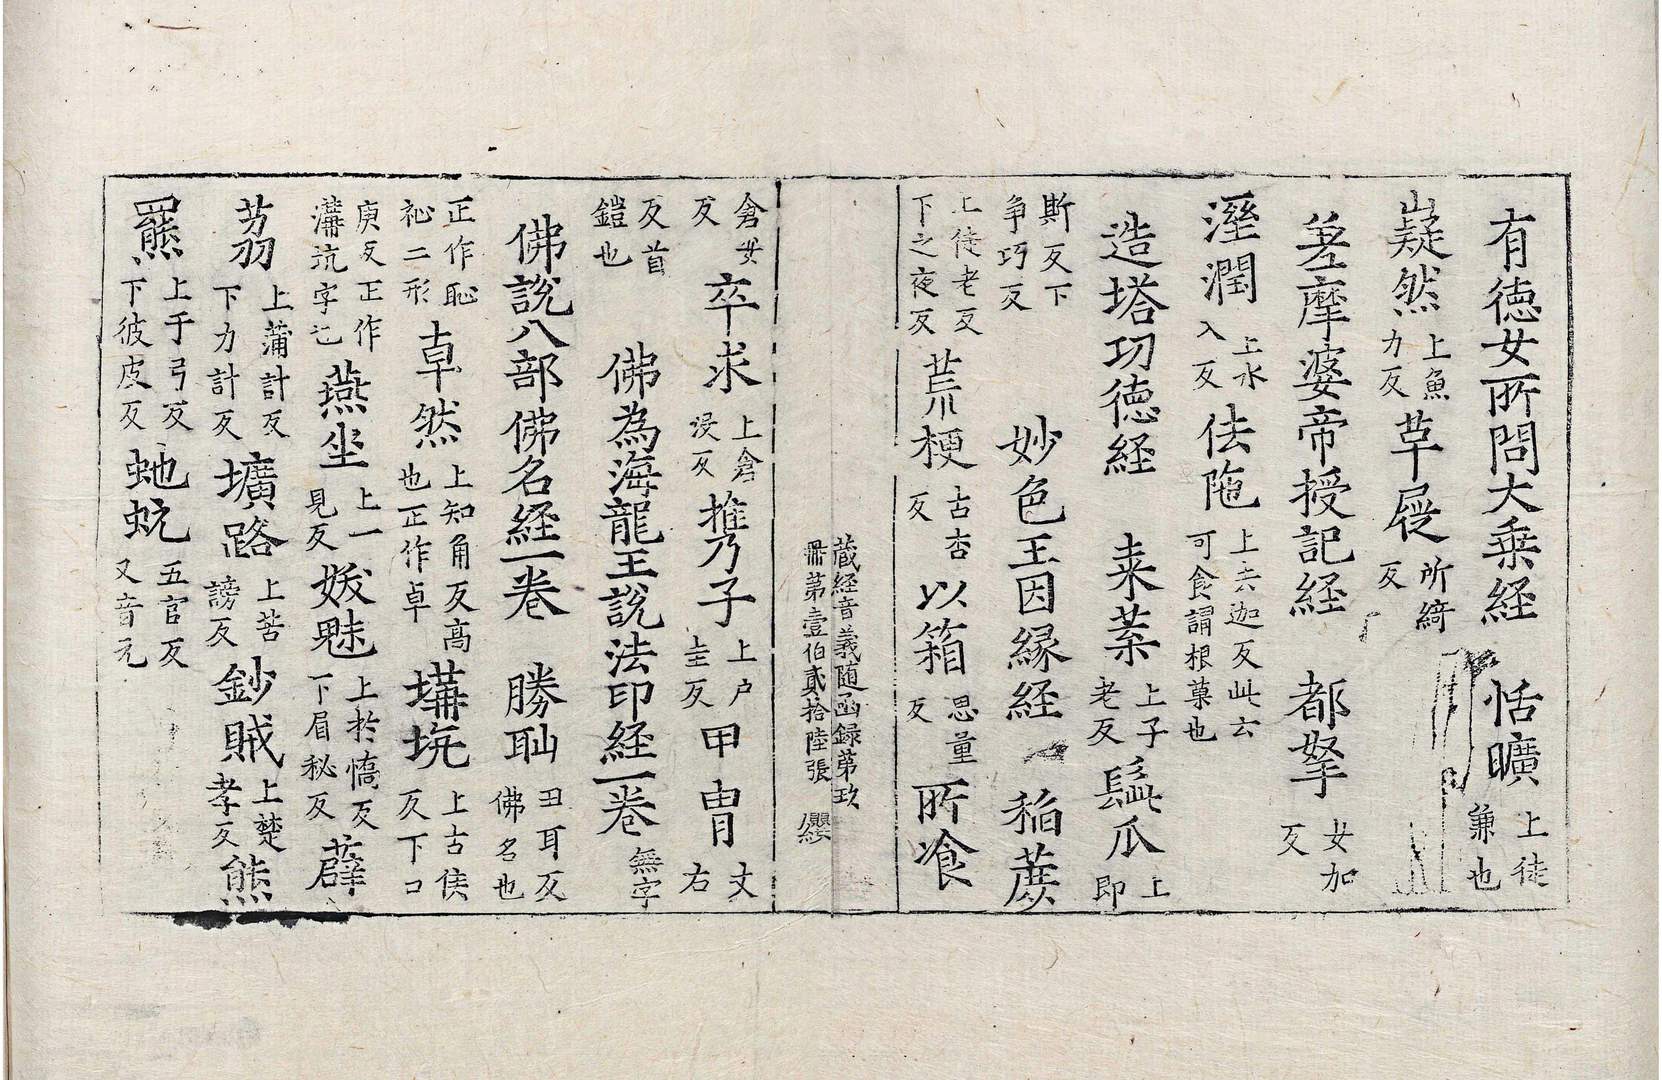 有徳女所問大乗経　恬曠上徒兼也
嶷然上魚力反草屣所綺反
差摩婆帝授記経　都拏女加反
溼潤上水入反佉陁上去迦反此云可食謂根菓也
造塔功徳経　来葇上子老反髱瓜上即
斯反下争巧反　妙色王因縁経　稲蔗
上徒老反下之夜反荒梗古杏反以箱思量反所飡
蔵経音義随函録第玖
冊第壹伯貳拾陸張　纓
倉安反　卒求上倉浸反携子上户圭反甲冑丈右
反首鎧也　佛為海龍王說法印経一卷無字
佛說八部佛名経一卷　勝耻丑耳反佛名也
正作恥祉二形卓然上知角反高也正作卓墷坈上古侯反下口
庚反正作溝坑字也燕坐上一見反妭魅上於憍反下眉秘反薜
荔上蒲計反下力計反壙路上苦謗反鈔賊上楚孝反熊
羆上于弓反下彼皮反虵蚖五官反又音元